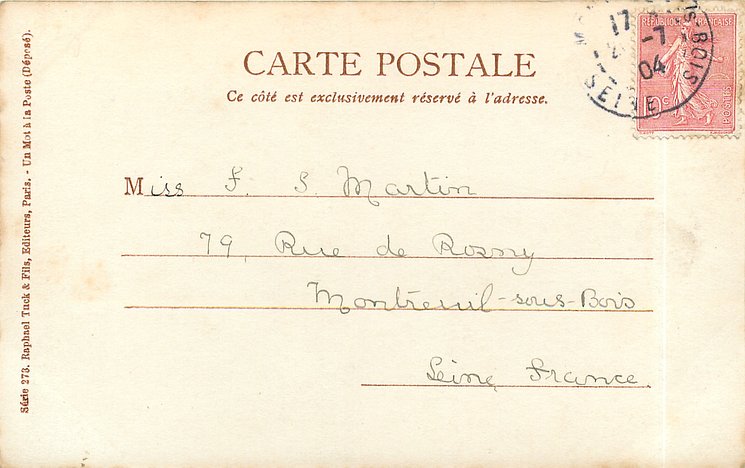 CARTE POSTALE
Ce côté est exclusivement réservé à l'adresse.
RÉPUBLIQUE FRANÇAISE
10 c
POSTES
17
-7
04
SEINE
S-BOIS
Miss F. S. Martin
79, Rue de Rosny
Montreuil-sous-Bois
Seine, France
Série 273. Raphael Tuck & Fils, Editeurs, Paris. - Un Mot à la Poste (Déposé).